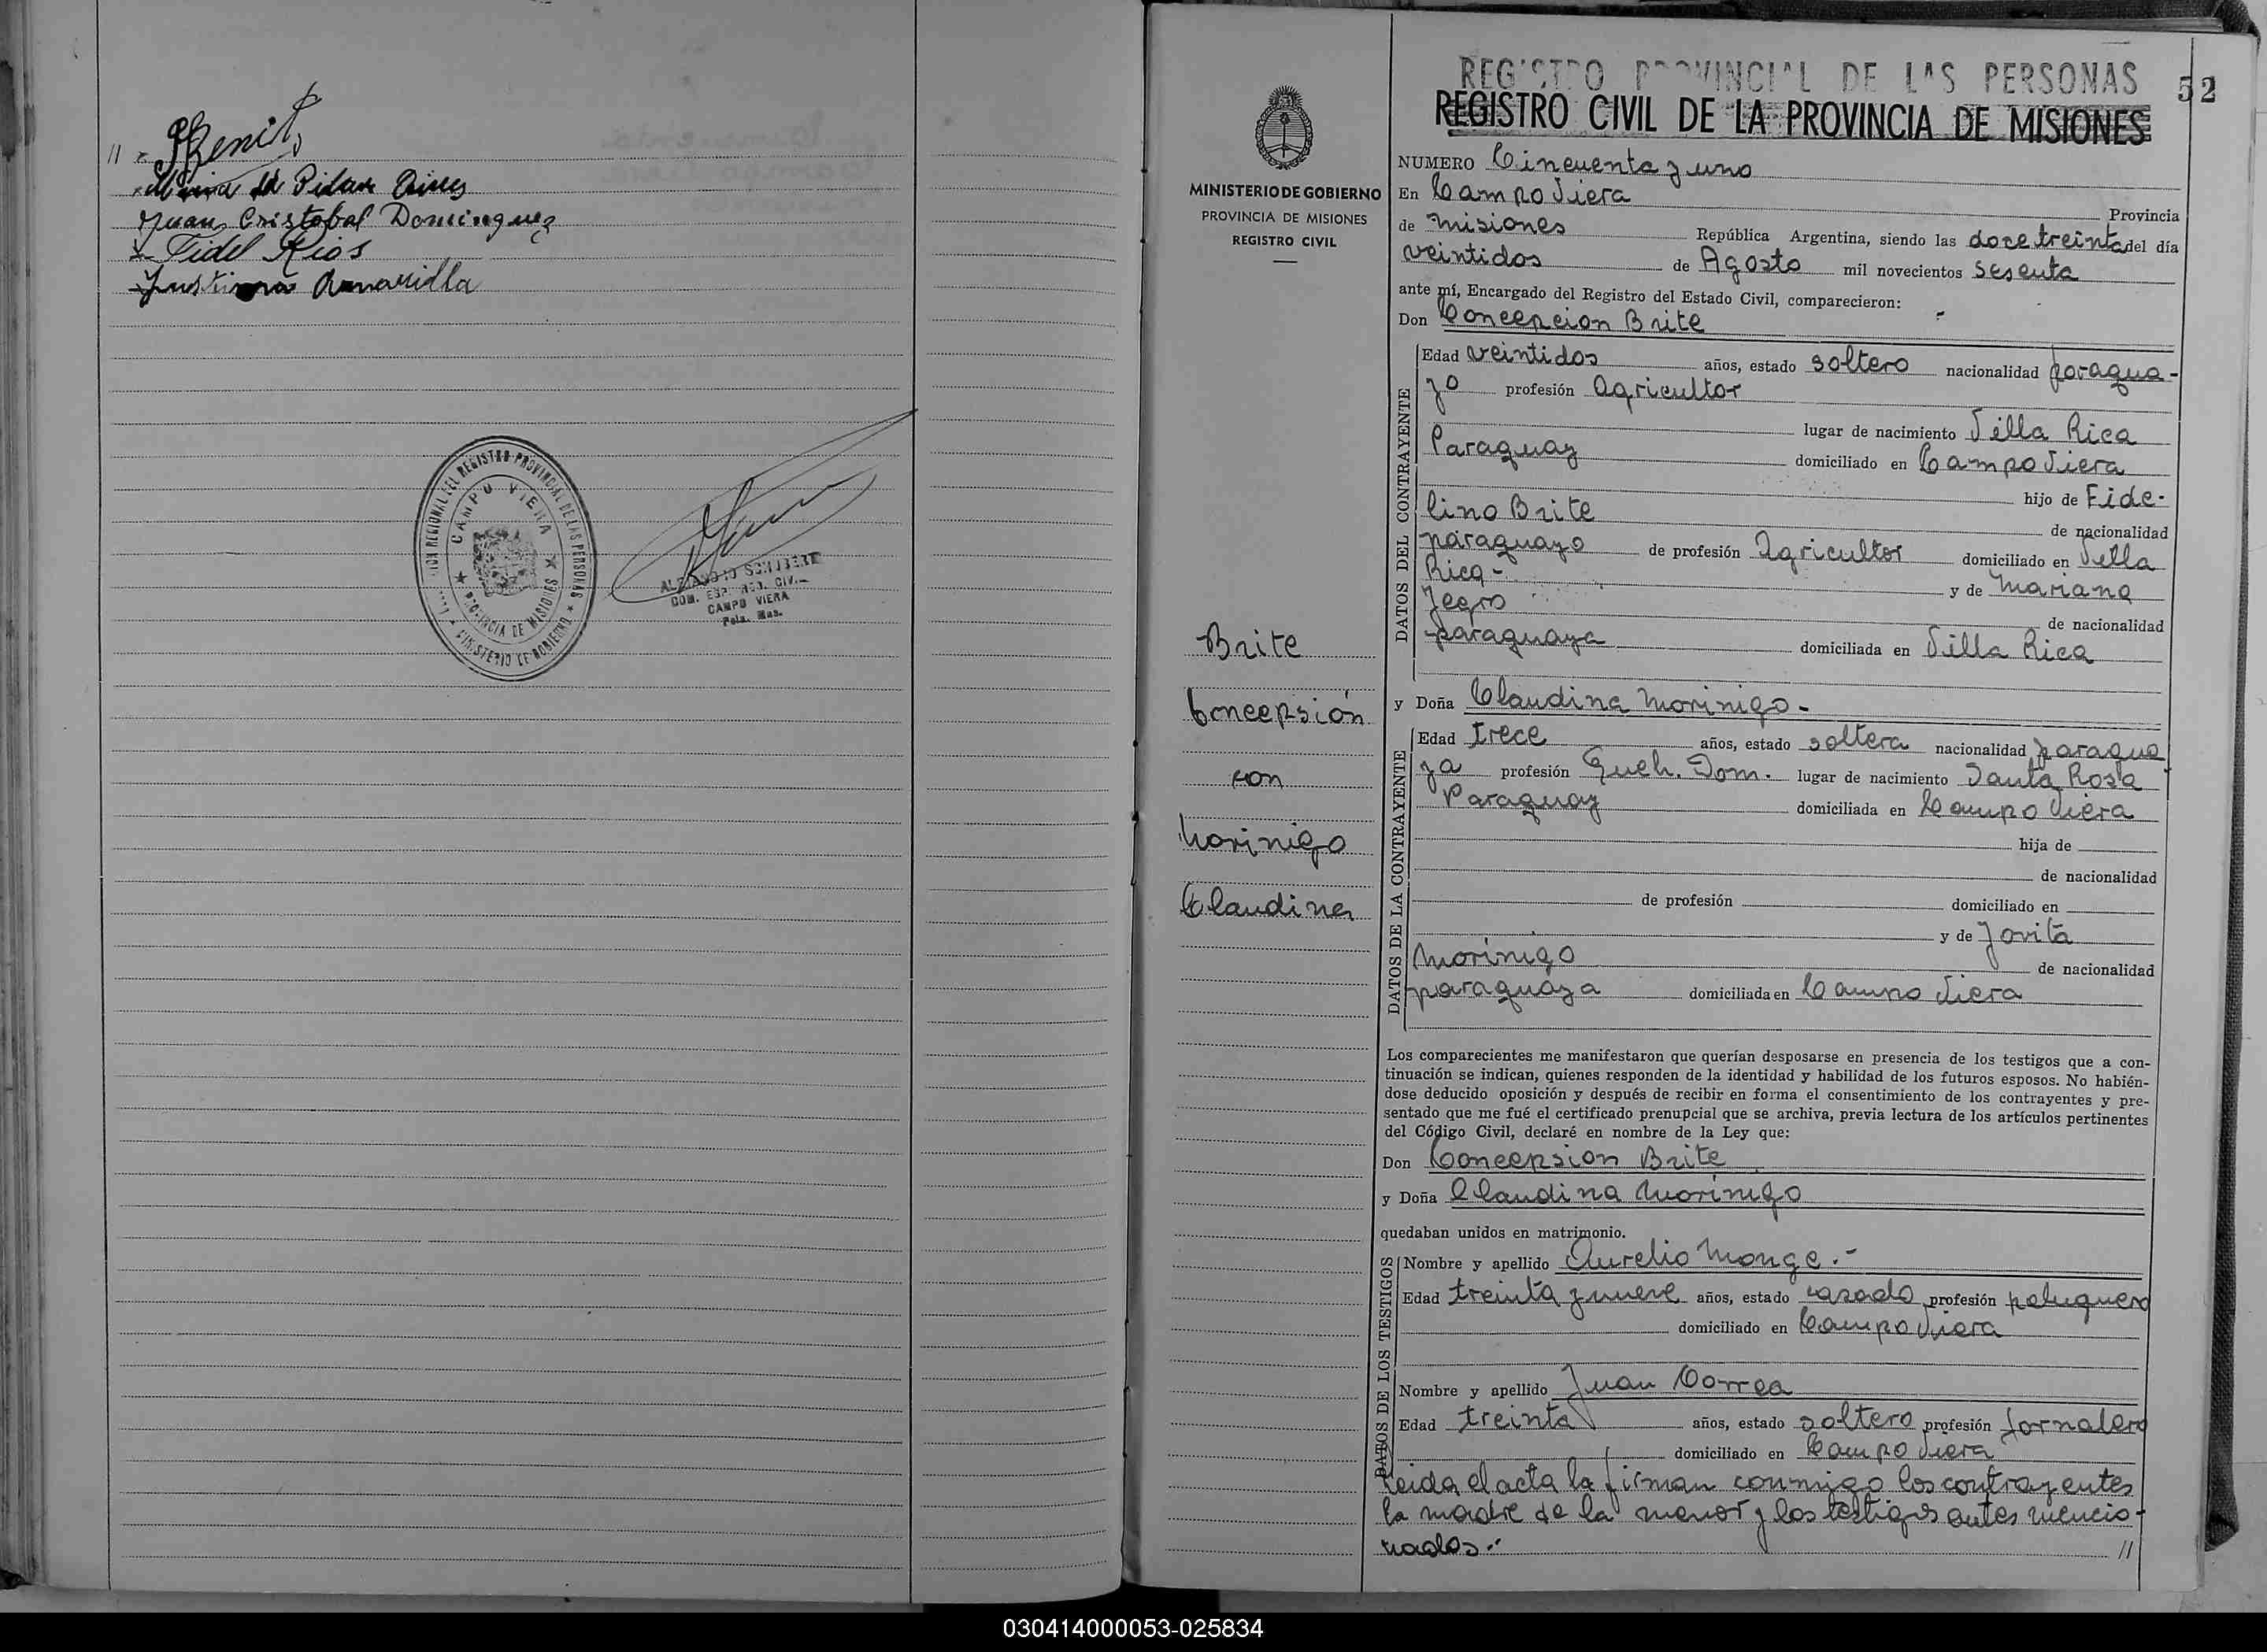 Maria del Pilar
Juan Cristobal Dominguez
Fidel Rios
Justina Amarilla
REGISTRO PROVINCIAL DE LAS PERSONAS
CAMPO VIERA
PROVINCIA DE MISIONES
MINISTERIO DE GOBIERNO
CAMPO VIERA
MINISTERIO DE GOBIERNO
PROVINCIA DE MISIONES
REGISTRO CIVIL
Brite
Concepsión
con
Morinigo
Claudina
REGISTRO PROVINCIAL DE LAS PERSONAS 52
REGISTRO CIVIL DE LA PROVINCIA DE MISIONES
NUMERO Cincuenta y uno
En Campo Viera Provincia
de Misiones República Argentina, siendo las doce treinta del día
veintidos de Agosto mil novecientos sesenta
ante mí, Encargado del Registro del Estado Civil, comparecieron:
Don Concepcion Brite
DATOS DEL CONTRAYENTE
Edad veintidos años, estado soltero nacionalidad paragua-
yo profesión Agricultor
lugar de nacimiento Villa Rica
Paraguay domiciliado en Campo Viera
hijo de Fide-
lino Brite de nacionalidad
paraguayo de profesión Agricultor domiciliado en Villa
Rica - y de Mariana
Yegro de nacionalidad
paraguaya domiciliada en Villa Rica
y Doña Claudina Morinigo -
DATOS DE LA CONTRAYENTE
Edad trece años, estado soltera nacionalidad paragua
ya profesión Queh. Dom. lugar de nacimiento Santa Rosa
Paraguay domiciliada en Campo Viera
hija de
de nacionalidad
de profesión domiciliado en
y de Jovita
Morinigo de nacionalidad
paraguaya domiciliada en Campo Viera
Los comparecientes me manifestaron que querían desposarse en presencia de los testigos que a con-
tinuación se indican, quienes responden de la identidad y habilidad de los futuros esposos. No habién-
dose deducido oposición y después de recibir en forma el consentimiento de los contrayentes y pre-
sentado que me fué el certificado prenupcial que se archiva, previa lectura de los artículos pertinentes
del Código Civil, declaré en nombre de la Ley que:
Don Concepsion Brite
y Doña Claudina Morinigo
quedaban unidos en matrimonio.
DATOS DE LOS TESTIGOS
Nombre y apellido Aurelio Monge.-
Edad treinta y nueve años, estado casado profesión peluquero
domiciliado en Campo Viera
Nombre y apellido Juan Correa
Edad treinta años, estado soltero profesión Jornalero
domiciliado en Campo Viera
Leida el acta la firman conmigo los contrayentes
la madre de la menor y los testigos antes mencio-
nados.- //
030414000053-025834